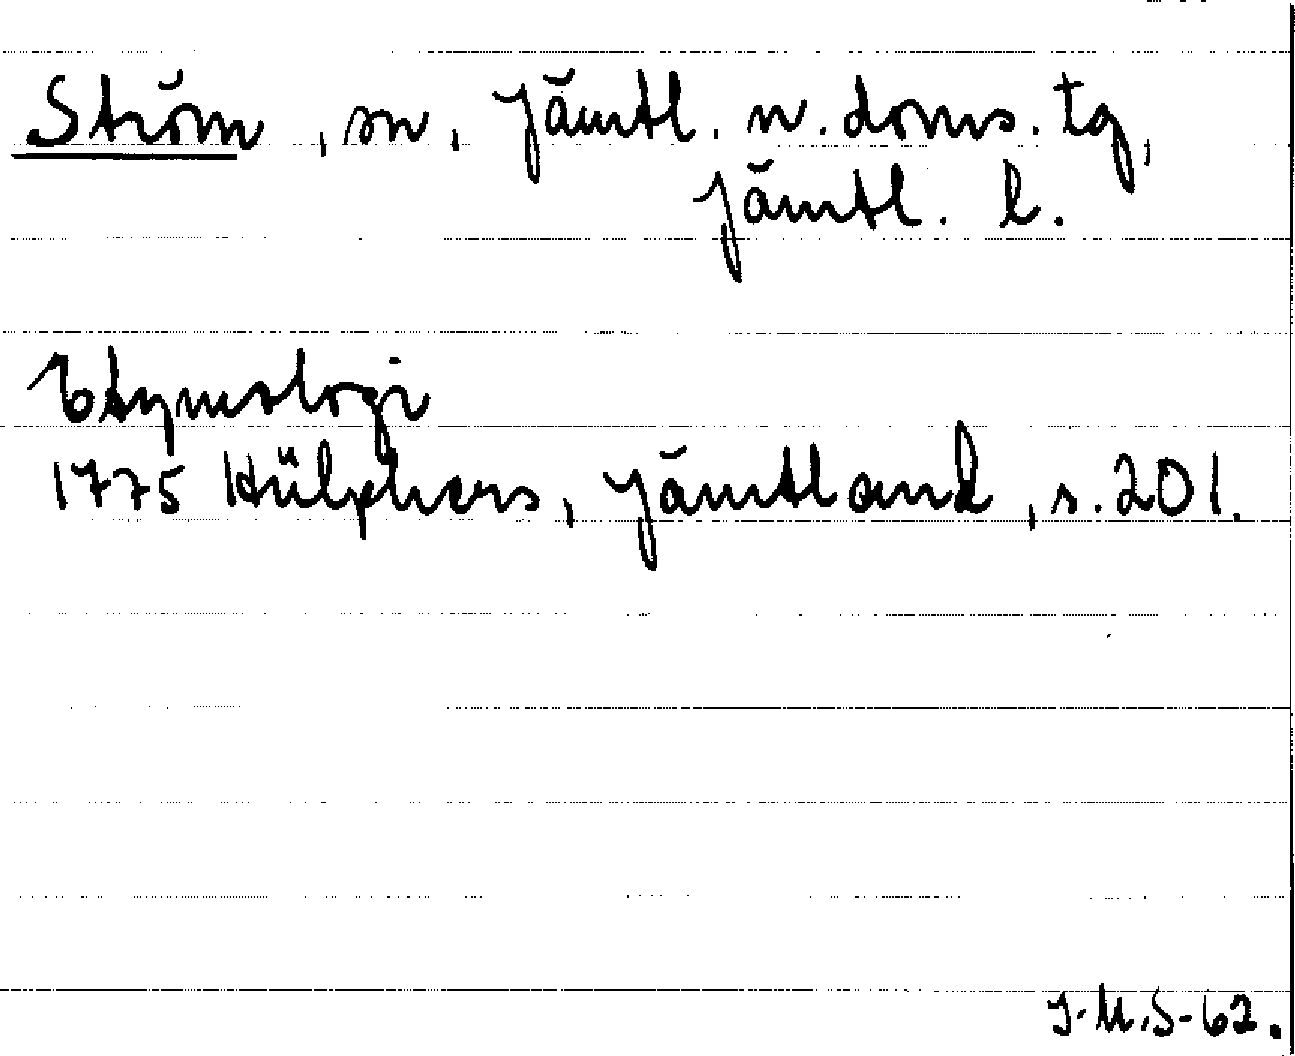 Ström, sn, Jämtl. n. doms. tg,
Jämtl. l.
Etymologi
1775 Hülphers, Jämtland, s. 201.
J.M.S-62.